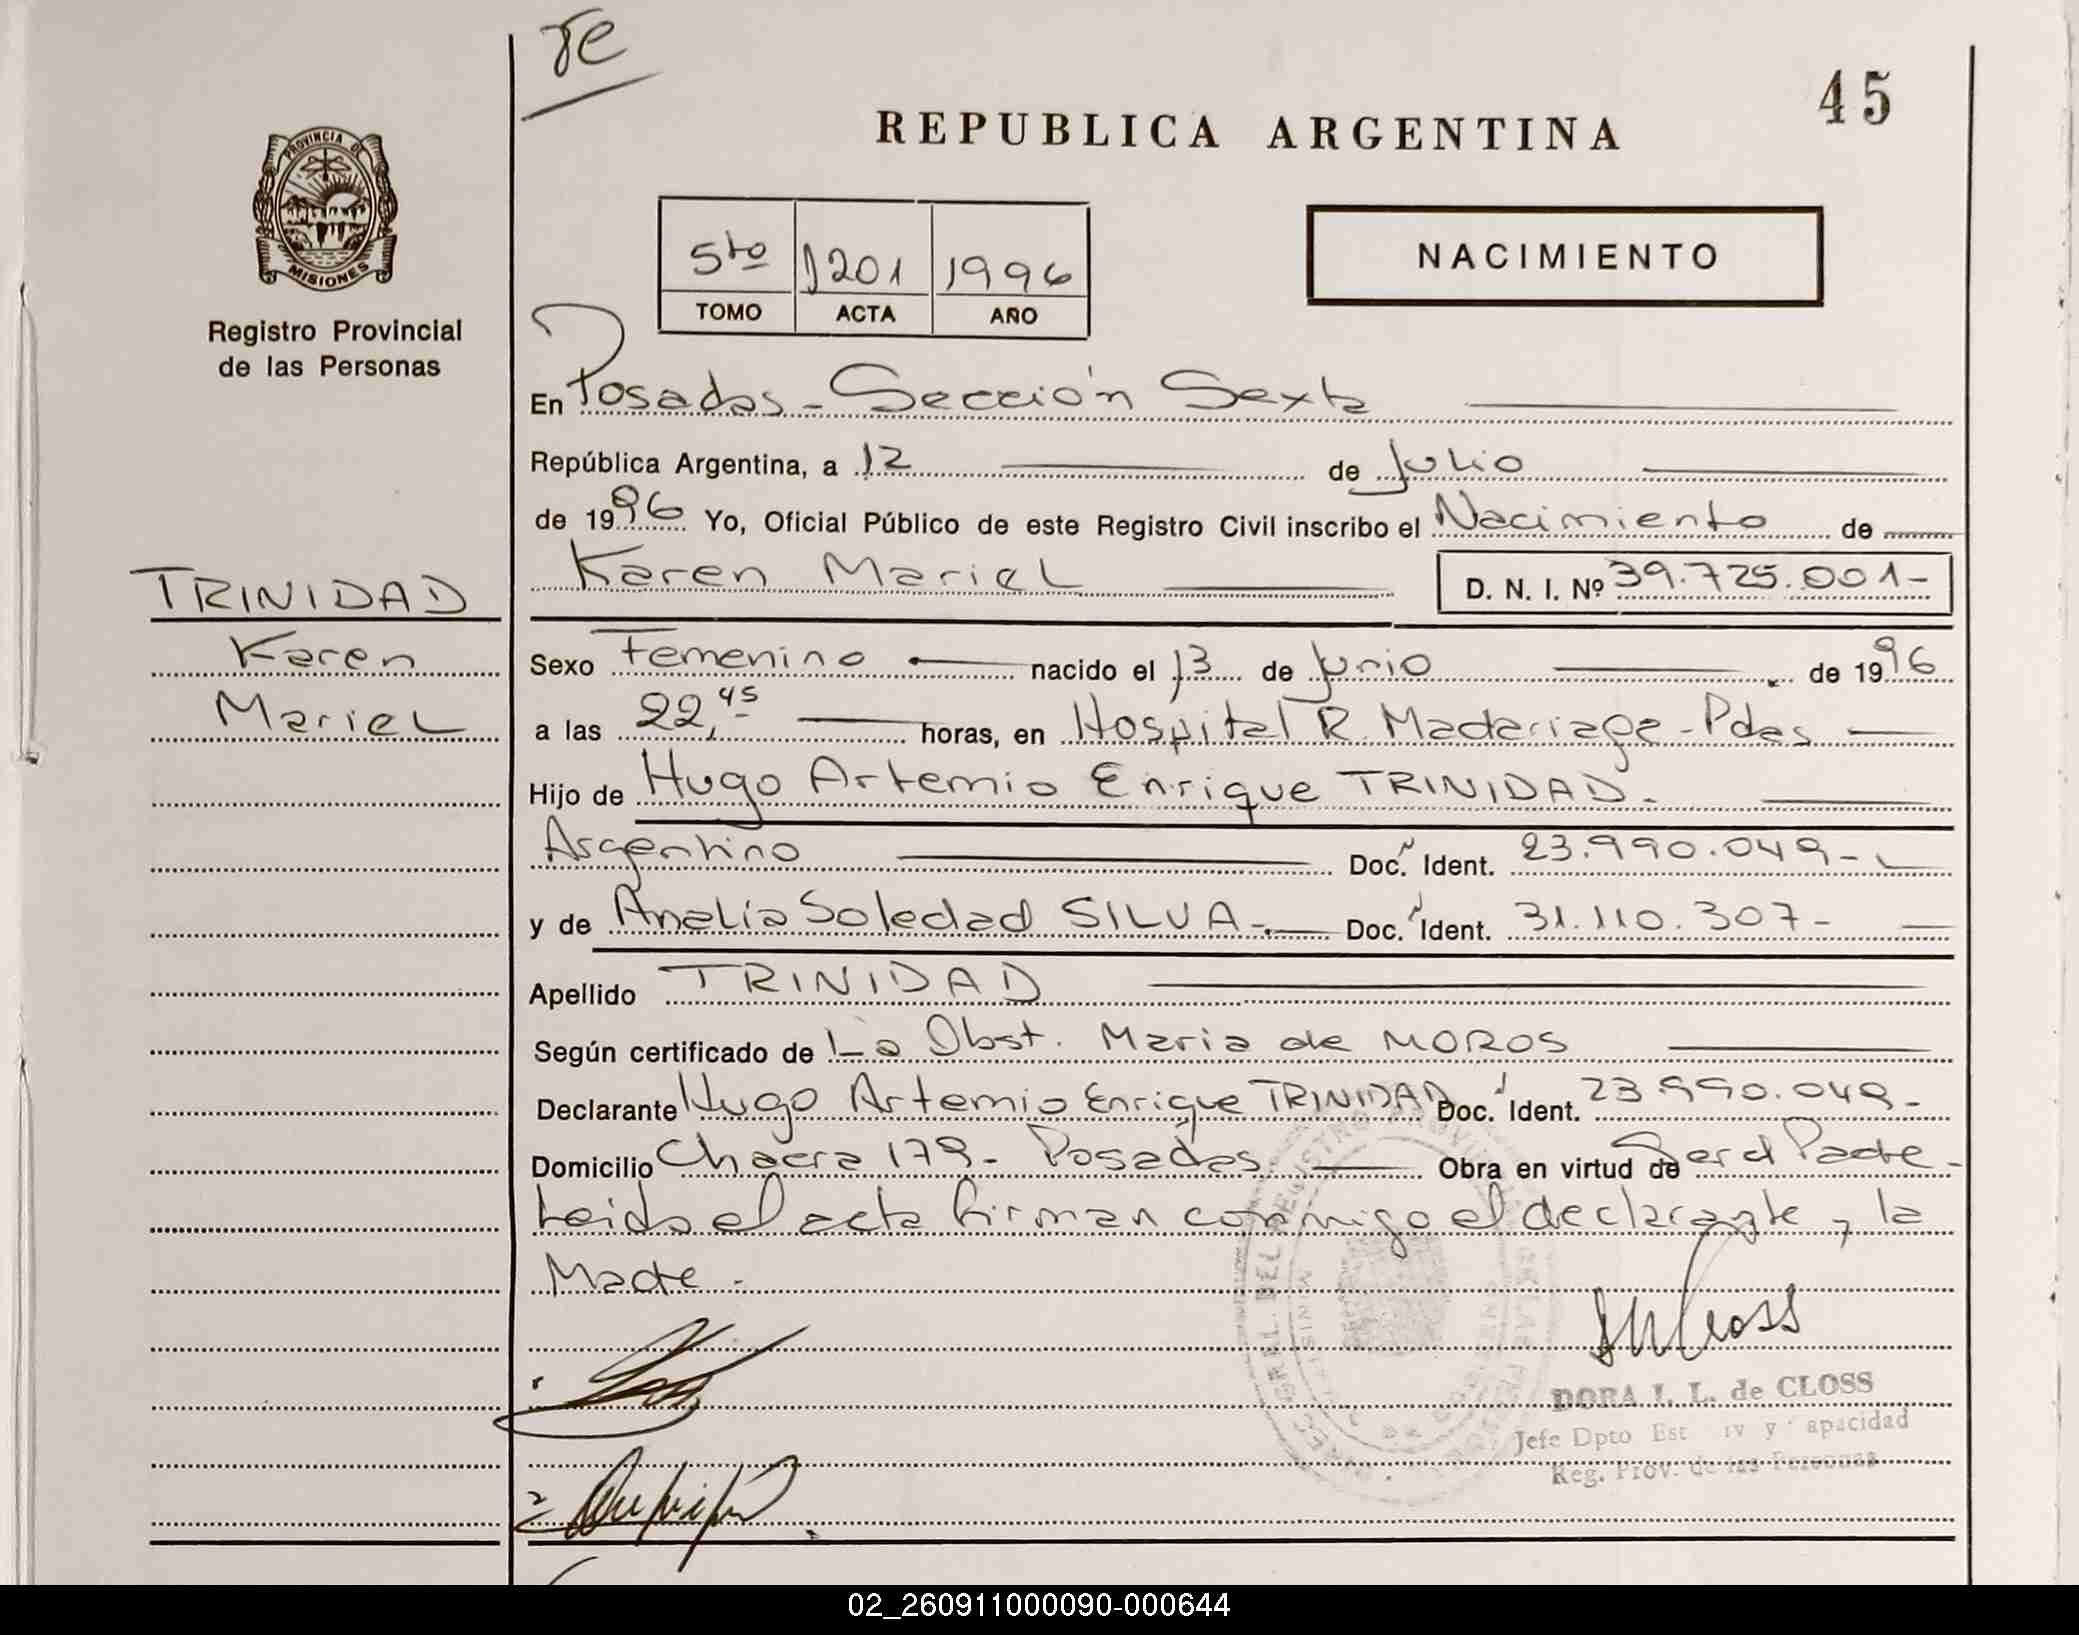 re
45
REPUBLICA ARGENTINA
PROVINCIA DE
MISIONES
Registro Provincial
de las Personas
5to 1201 1996
TOMO ACTA AÑO
NACIMIENTO
En Posadas - Sección Sexta
República Argentina, a 12 de Julio
de 1996 Yo, Oficial Público de este Registro Civil inscribo el Nacimiento de
Karen Mariel D. N. I. Nº 39.725.001-
TRINIDAD
Karen
Mariel
Sexo Femenino nacido el 13 de Junio de 1996
a las 22,45 horas, en Hospital R. Madariaga - Pdas
Hijo de Hugo Artemio Enrique TRINIDAD.
Argentino Doc. Ident. 23.990.049-
y de Analía Soledad SILVA - Doc. Ident. 31.110.307-
Apellido TRINIDAD
Según certificado de La Obst. Maria de MOROS
Declarante Hugo Artemio Enrique TRINIDAD Doc. Ident. 23.990.049-
Domicilio Chacra 179 - Posadas Obra en virtud de Ser el Padre -
Leida el acta firman conmigo el declarante y la
Madre -
DORA I. L. de CLOSS
Jefe Dpto Est iv y apacidad
Reg. Prov. de las Personas
02_260911000090-000644